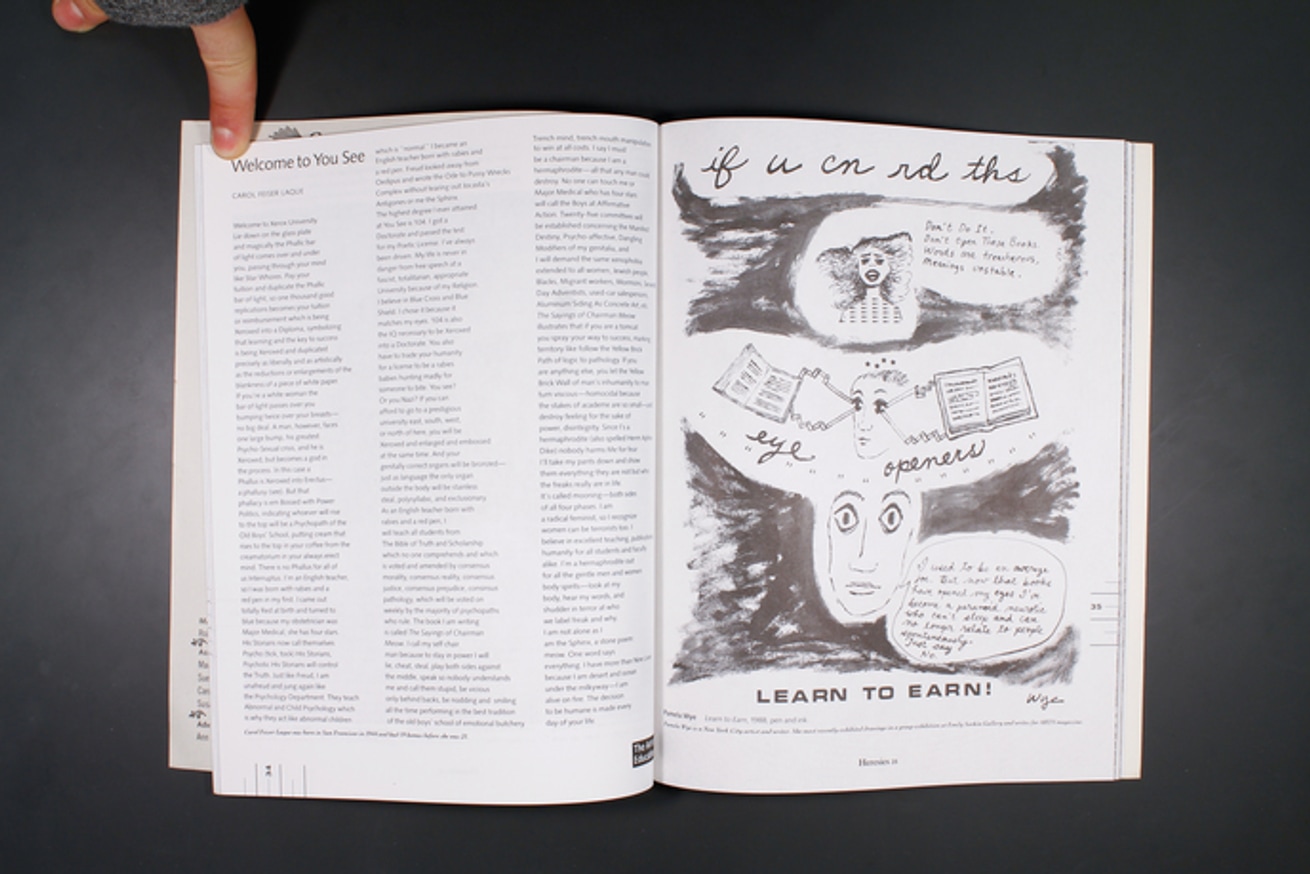 Welcome to You See
CAROL FEISER LAQUE
Welcome to Xerox University
Lie down on the glass plate
and magically the Phallic bar
of light comes over and under
you, passing through your mind
like Star Whores. Pay your
tuition and duplicate the Phallic
bar of light, so one thousand good
replications becomes your tuition
or reimbursement which is being
Xeroxed into a Diploma, symbolizing
that learning and the key to success
is being Xeroxed and duplicated
precisely as literally and as artistically
as the reductions or enlargements of the
blankness of a piece of white paper
If you're a white woman the
bar of light passes over you
bumping twice over your breasts—
no big deal. A man, however, faces
one large bump, his greatest
Psycho-Sexual crisis, and he is
Xeroxed, but becomes a god in
the process. In this case a
Phallus is Xeroxed into Erectus—
a phallusy (see). But that
phallacy is em Bossed with Power
Politics, indicating whoever will rise
to the top will be a Psychopath of the
Old Boys' School, putting cream that
rises to the top in your coffee from the
creamatorium in your always erect
mind. There is no Phallus for all of
us Interruptus. I'm an English teacher,
so I was born with rabies and a
red pen in my first. I came out
totally Red at birth and turned to
blue because my obstetrician was
Major Medical, she has four stars.
His Storians now call themselves
Psycho-Tick, toxic His Storians,
Psychotic His Storians will control
the Truth. Just like Freud, I am
unafreud and jung again like
the Psychology Department. They teach
Abnormal and Child Psychology which
is why they act like abnormal children
which is "normal." I became an
English teacher born with rabies and
a red pen. Freud looked away from
Oedipus and wrote the Ode to Pussy Wrecks
Complex without tearing out Jocasta's
Antigones or me the Sphinx.
The highest degree I ever attained
at You See is 104. I got a
Doctorate and passed the test
for my Poetic License. I've always
been driven. My life is never in
danger from free speech at a
fascist, totalitarian, appropriate
University because of my Religion.
I believe in Blue Cross and Blue
Shield. I chose it because it
matches my eyes. 104 is also
the IQ necessary to be Xeroxed
into a Doctorate. You also
have to trade your humanity
for a license to be a rabies
babies hunting madly for
someone to bite. You see?
Or you Nazi? If you can
afford to go to a prestigious
university east, south, west,
or north of here, you will be
Xeroxed and enlarged and embossed
at the same time. And your
genitally correct organs will be bronzed—
just as language the only organ
outside the body will be stainless
steal, polysyllabic, and exclusionary.
As an English teacher born with
rabies and a red pen, I
will teach all students from
The Bible of Truth and Scholarship
which no one comprehends and which
is voted and amended by consensus
morality, consensus reality, consensus
justice, consensus prejudice, consensus
pathology, which will be voted on
weekly by the majority of psychopaths
who rule. The book I am writing
is called The Sayings of Chairman
Meow. I call my self chair
man because to stay in power I will
lie, cheat, steal, play both sides against
the middle, speak so nobody understands
me and call them stupid, be vicious
only behind backs, be nodding and smiling
all the time performing in the best tradition
of the old boys' school of emotional butchery
Trench mind, trench mouth
to win at all costs. I say I must
be a chairman because I am a
hermaphrodite—all that any man could
destroy. No one can touch me or
Major Medical who has four stars
will call the Boys at Affirmative
Action. Twenty-five committees will
be established concerning the Manifest
Destiny, Psycho-affective, Dangling
Modifiers of my genitalia, and
I will demand the same xenophobia
extended to all women, Jewish people,
Blacks, Migrant workers, Mormons,
Day Adventists, used-car salesperson,
Aluminum Siding As Concrete Art, etc.
The Sayings of Chairman Meow
illustrates that if you are a tomcat
you spray your way to success, marking
territory like follow the Yellow Brick
Path of logic to pathology. If you
are anything else, you let the Yellow
Brick Wall of man's inhumanity to
turn viscous—homicidal because
the stakes of academe are so small—
destroy feeling for the sake of
power, disintegrity. Since I'm a
hermaphrodite (also spelled Hem
Dike) nobody harms Me for fear
I'll take my pants down and show
them everything they are not but why
the freaks really are in life.
It's called mooning—both sides
of all four phases. I am
a radical feminist, so I recognize
women can be terrorists too. I
believe in excellent teaching,
humanity for all students and
alike. I'm a hermaphrodite out
for all the gentle men and women
body spirits—look at my
body, hear my words, and
shudder in terror at who
we label freak and why
I am not alone as I
am the Sphinx, a stone poem
meow. One word says
everything. I have more than New
because I am desert and sweet
under the milkyway—I am
alive on fire. The decision
to be humane is made every
day of your life.
Carol Feiser Laque was born in San Francisco in 1944 and had 19 homes before she was 21.
34
if u cn rd ths
Don't Do It.
Don't open These Books.
Words are treacherous,
Meanings unstable.
eye
openers
I used to be an average
joe. But now that books
have opened my eyes I'm
become a paranoid neurotic
who can't sleep and can
no longer relate to people
spontaneously.
Just say
No.
LEARN TO EARN!
Wye
Pamela Wye Learn to Earn, 1988, pen and ink.
Pamela Wye is a New York City artist and writer. She most recently exhibited drawings in a group exhibition at Emily Sorkin Gallery and writes for ARTS magazine.
35
Heresies 25